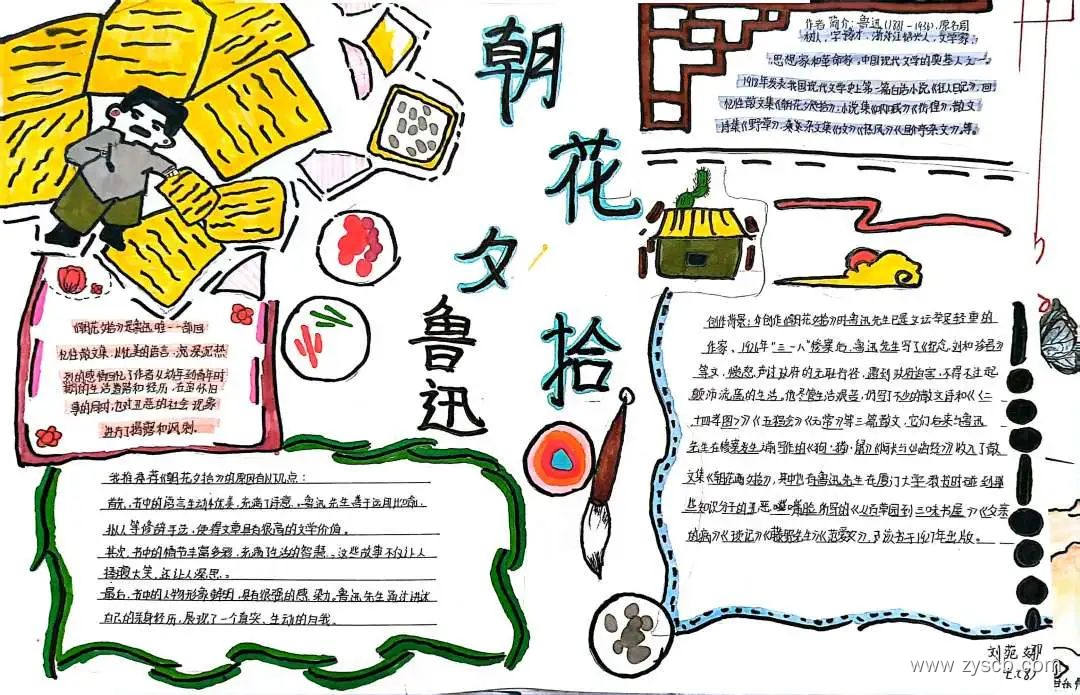 朝
花
夕
拾
鲁
迅
作者简介：鲁迅(1881-1936)，原名周
树人，字豫才，浙江绍兴人，文学家
思想家和革命家，中国现代文学的奠基人之一。
1918年发表我国现代文学史上第一篇白话小说《狂人日记》，回
忆性散文集《朝花夕拾》，小说集《呐喊》《彷徨》，散文
诗集《野草》，杂文集《坟》《热风》《且介亭杂文》，等。
《朝花夕拾》是鲁迅唯一一部回
忆性散文集，以优美的语言，深沉
的感情回忆了作者从幼年到青年时
期的生活道路和经历，在重怀旧
事的同时，也对丑恶的社会现象
进行了揭露和讽刺。
创作背景：在创作《朝花夕拾》时鲁迅先生已是文坛举足轻重的
作家。1926年"三一八"惨案后，鲁迅先生写了《纪念刘和珍君》
等文，愤怒声讨政府的无耻行径，遭到政府迫害，不得不过起
颠沛流离的生活。他尽管生活艰苦，仍写了不少的散文诗和《二
十四孝图》《五猖会》《无常》等三篇散文，它们后来与鲁迅
先生在惨案发生之前写作的《狗·猫·鼠》《阿长与山海经》收入了散
文集《朝花夕拾》，其中也有鲁迅先生在厦门大学教书时碰到某
些知识分子的丑恶嘴脸所写的《从百草园到三味书屋》《父亲
的病》《琐记》《藤野先生》《范爱农》，该书于1927年出版。
我推荐《朝花夕拾》的原因有以几点：
首先，书中的语言生动优美，充满了诗意。鲁迅先生善于运用比喻、
拟人等修辞手法，使得文章具有很高的文学价值。
其次，书中的情节丰富多彩，充满了生活的智慧。这些故事不仅让人
捧腹大笑，还让人深思。
最后，书中的人物形象鲜明，具有很强的感染力。鲁迅先生通过讲述
自己的亲身经历，展现了一个真实、生动的自我。
刘苑娜
七(8)
www.zyscb.com